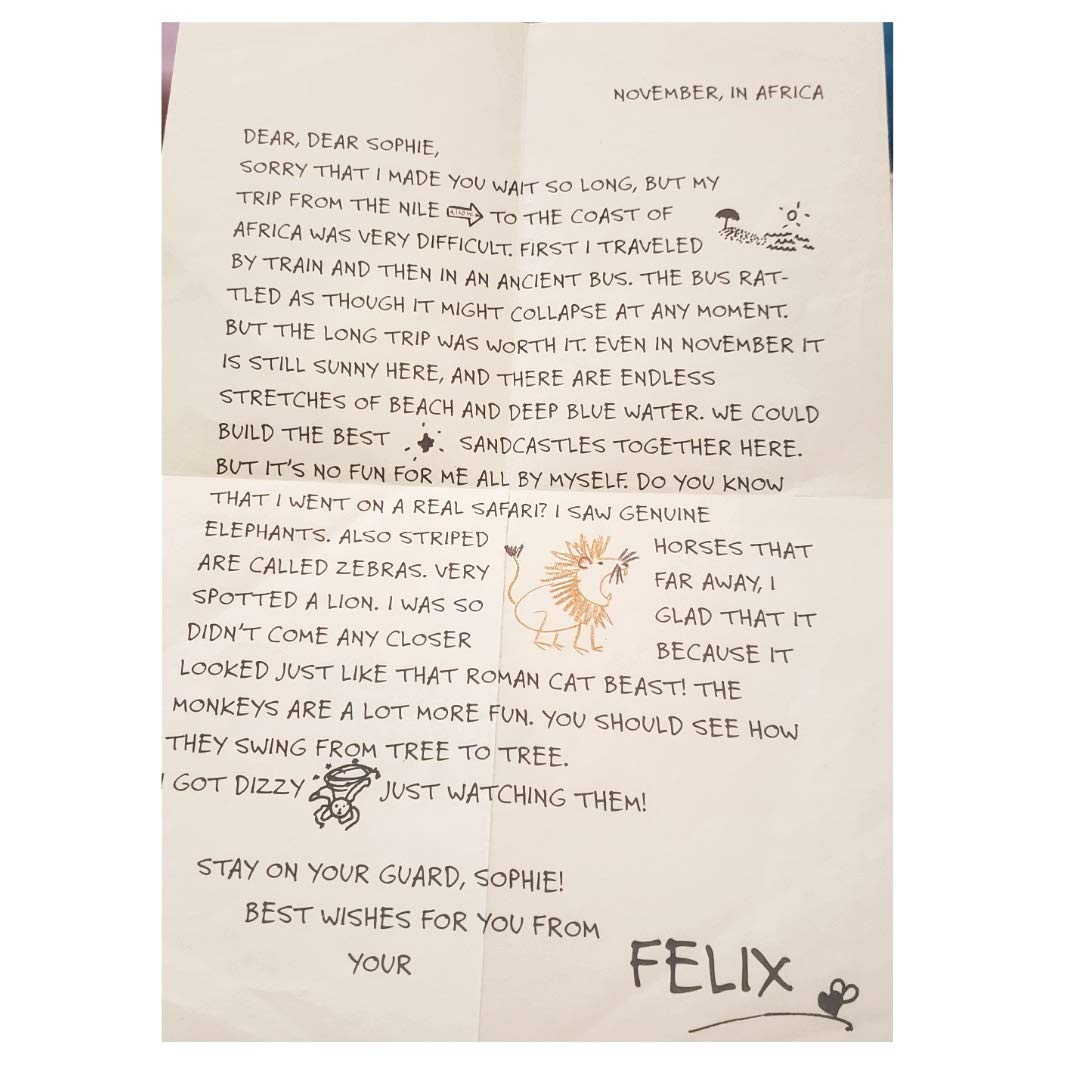 NOVEMBER, IN AFRICA
DEAR, DEAR SOPHIE,
SORRY THAT I MADE YOU WAIT SO LONG, BUT MY
TRIP FROM THE NILE TO THE COAST OF
AFRICA WAS VERY DIFFICULT. FIRST I TRAVELED
BY TRAIN AND THEN IN AN ANCIENT BUS. THE BUS RAT-
TLED AS THOUGH IT MIGHT COLLAPSE AT ANY MOMENT.
BUT THE LONG TRIP WAS WORTH IT. EVEN IN NOVEMBER IT
IS STILL SUNNY HERE, AND THERE ARE ENDLESS
STRETCHES OF BEACH AND DEEP BLUE WATER. WE COULD
BUILD THE BEST SANDCASTLES TOGETHER HERE.
BUT IT'S NO FUN FOR ME ALL BY MYSELF. DO YOU KNOW
THAT I WENT ON A REAL SAFARI? I SAW GENUINE
ELEPHANTS. ALSO STRIPED HORSES THAT
ARE CALLED ZEBRAS. VERY FAR AWAY, I
SPOTTED A LION. I WAS SO GLAD THAT IT
DIDN'T COME ANY CLOSER BECAUSE IT
LOOKED JUST LIKE THAT ROMAN CAT BEAST! THE
MONKEYS ARE A LOT MORE FUN. YOU SHOULD SEE HOW
THEY SWING FROM TREE TO TREE.
I GOT DIZZY JUST WATCHING THEM!
STAY ON YOUR GUARD, SOPHIE!
BEST WISHES FOR YOU FROM
YOUR
FELIX